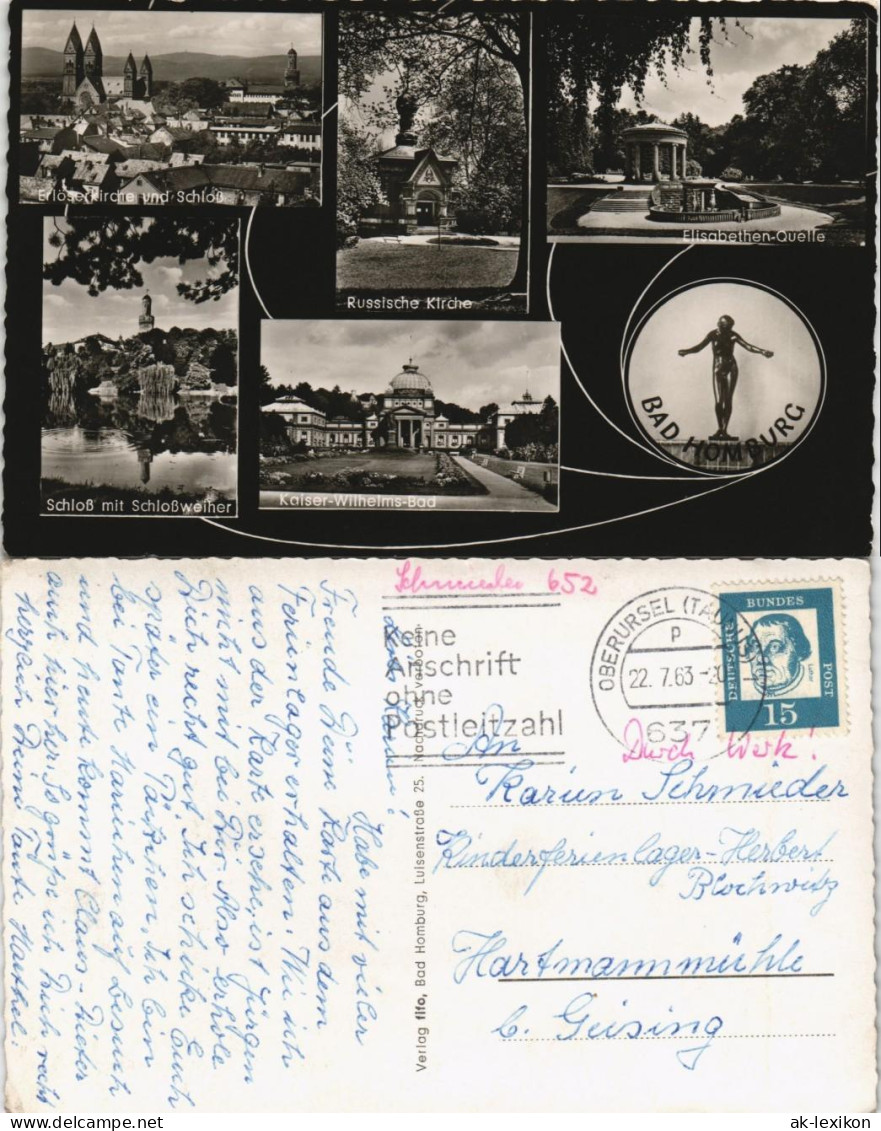 Erlöserkirche und Schloß
Russische Kirche
Elisabethen-Quelle
Schloß mit Schloßweiher
Kaiser-Wilhelms-Bad
BAD HOMBURG
Schmieder 652
Keine
Anschrift
ohne
Postleitzahl
OBERURSEL (TAUNUS)
p
22.7.63
637
DEUTSCHE BUNDES POST
Luther
15
Durch Werk!
An
Karin Schmieder
Kinderferienlager-Herbert
Blochwitz
Hartmannmühle
b. Geising
Verlag fifo, Bad Homburg, Luisenstraße 25. Nachdruck verboten
Habe mit vieler
Freude Deine Karte aus dem
Ferienlager erhalten. Wie ich
aus der Karte ersehe, ist Jürgen
nicht mit bei Dir. Also erhole
Dich recht gut. Ich schicke Euch
später ein Päckchen. Ich bin
bei Tante auf Besuch
und heute kommt Claus-Dieter
auch hier her. So grüße ich Dich recht
herzlich Deine Tante
ak-lexikon